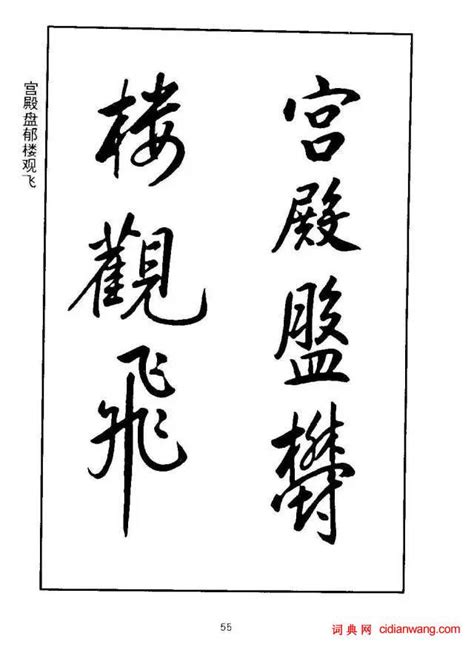 宫殿盘郁楼观飞
宫殿盤欝
楼觀飛
55
词典网 cidianwang.com